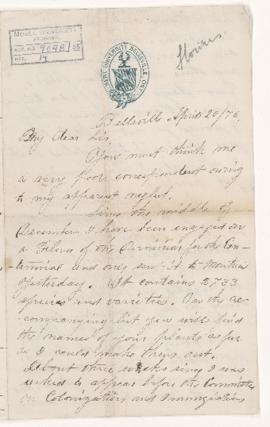 McGILL UNIVERSITY
ACC. NO. 909B/35
REF. 17
ALBERT UNIVERSITY, BELLEVILLE, ONT.
Belleville April 20/76
My dear Sir
You must think me
a very poor correspondent owing
to my apparent neglect.
Since the middle of
December I have been engaged on
a Flora of the Dominion for the Cen-
tennial and only sent it to Montreal
yesterday. It contains 2733
species and varieties. On the ac-
companying list you will find
the names of your plants as far
as I could make them out.
About three weeks since I was
asked to appear before the Committee
on Colonization and Immigration